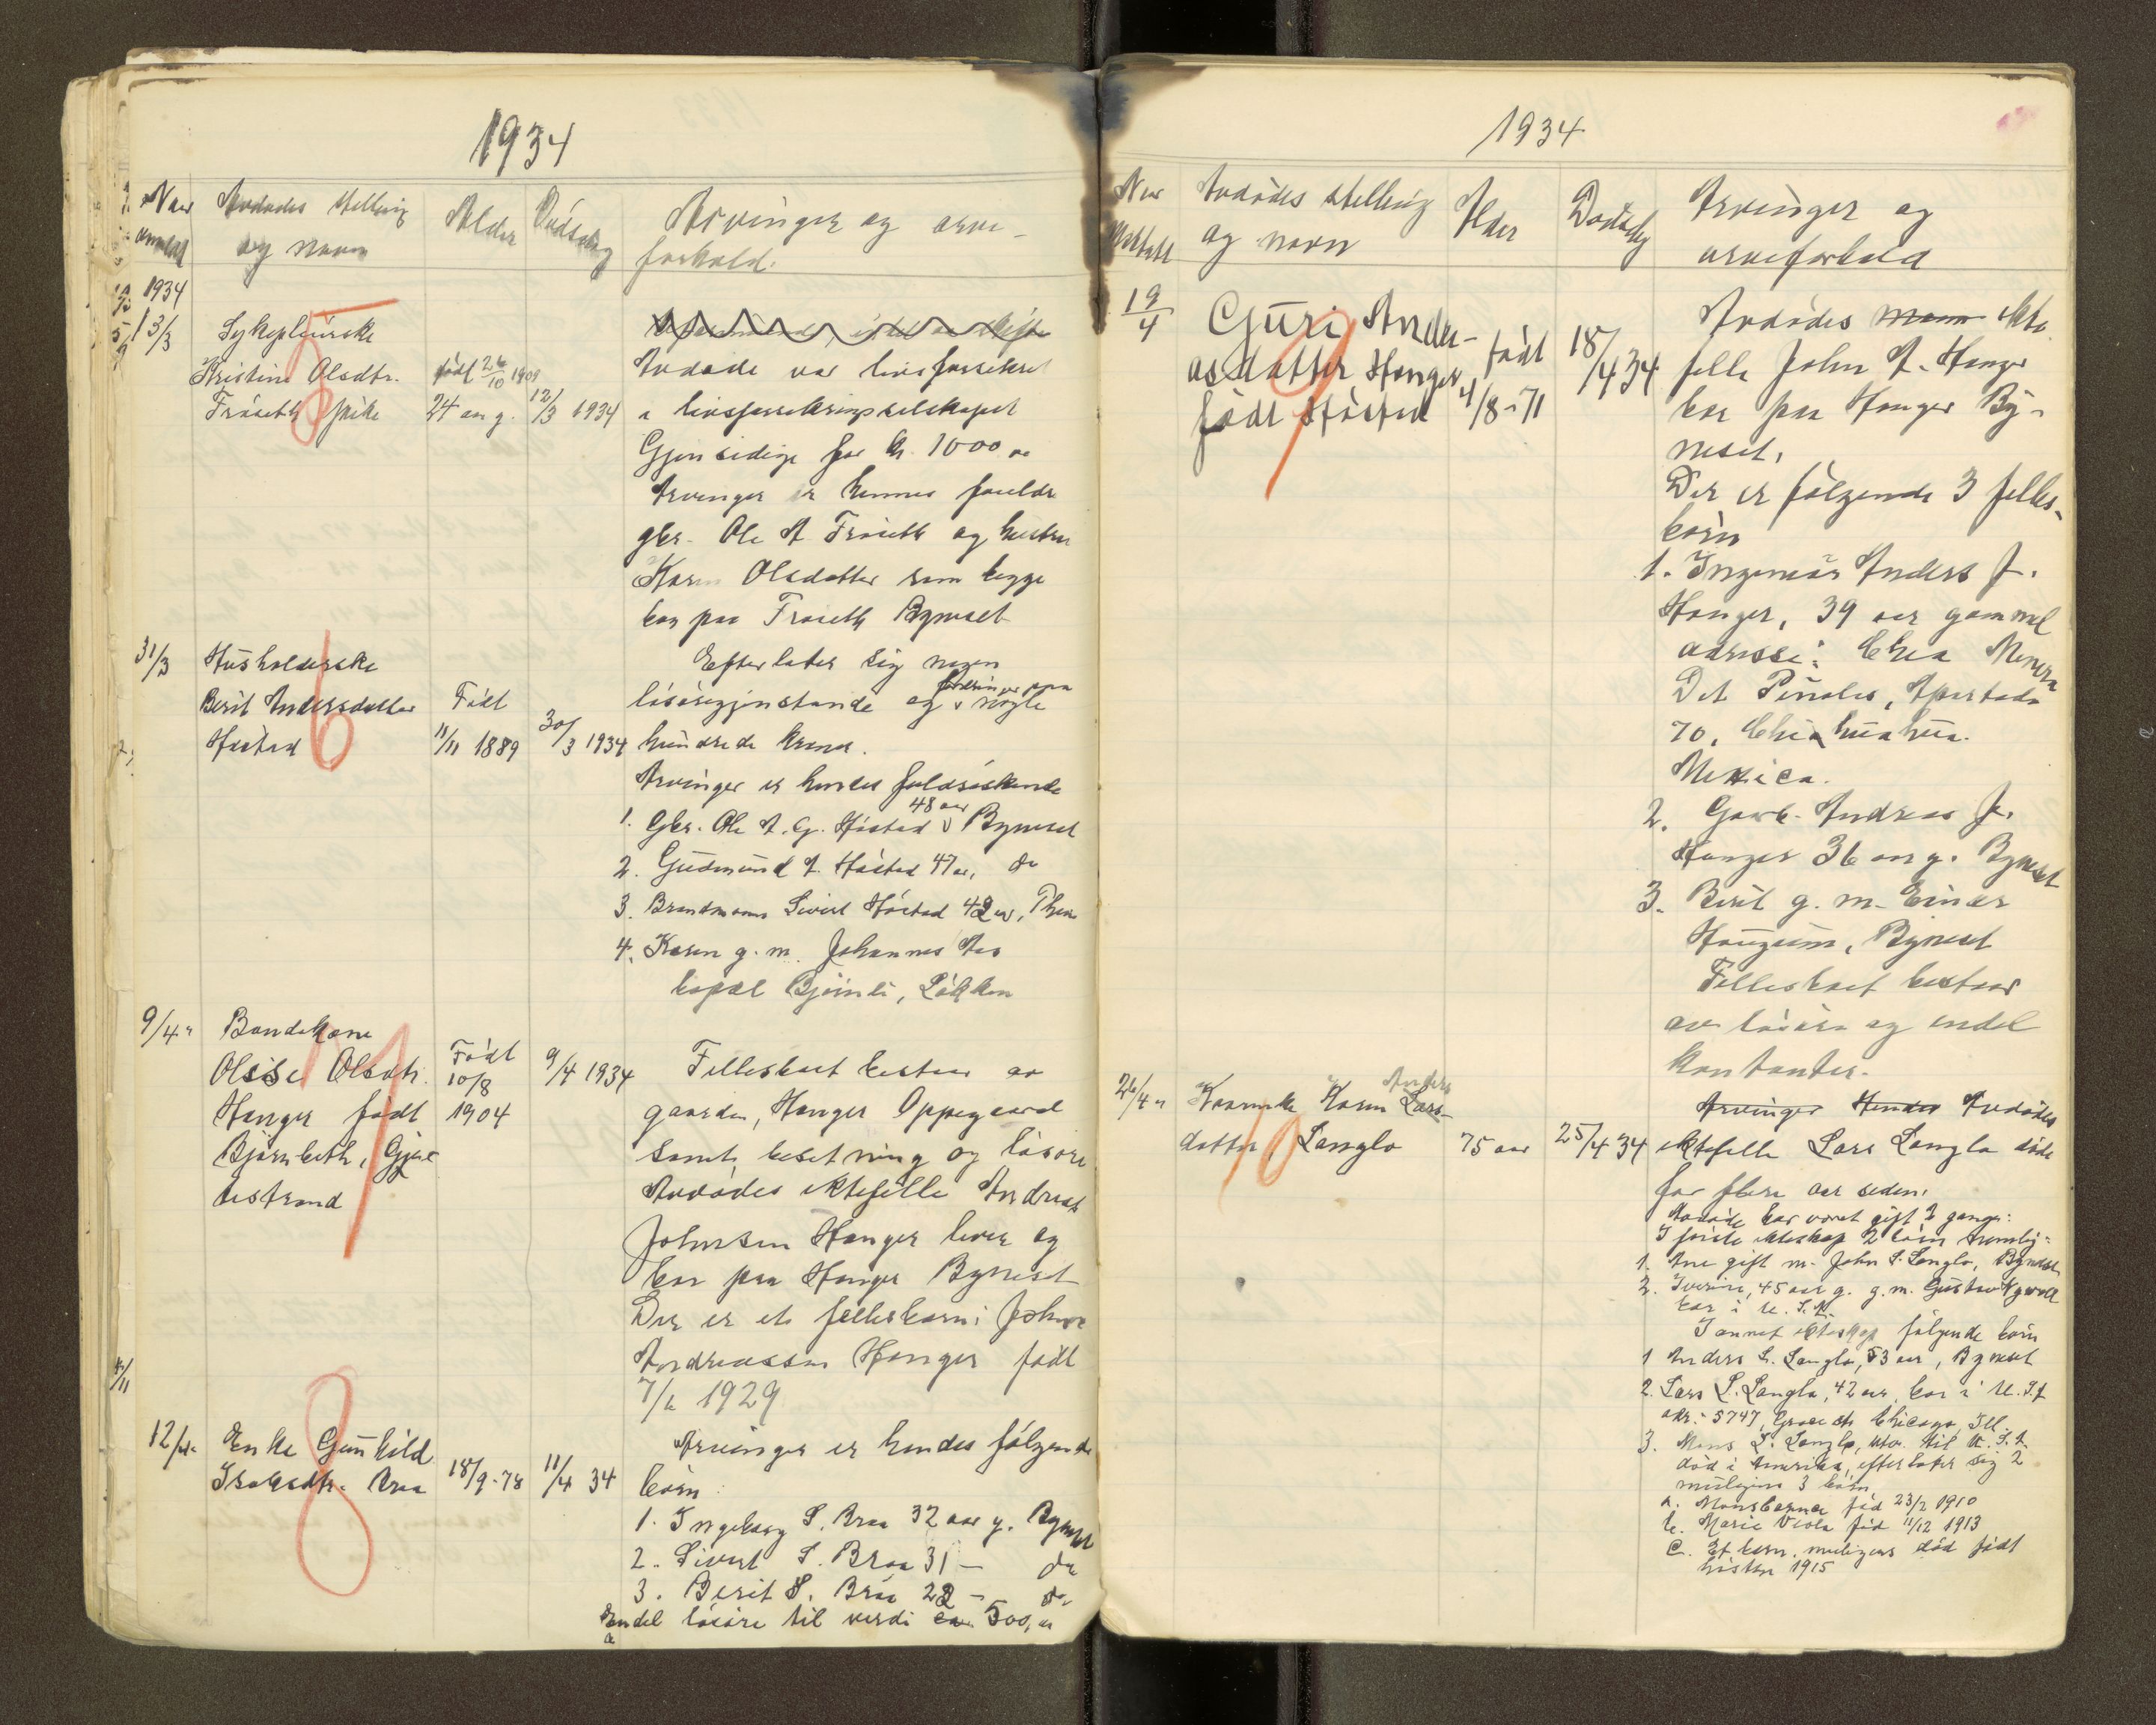 1934
Naar anmeldt
Avdødes stilling og navn
Alder
Dødsdag
Arvinger og arveforhold.
1934
13/3
Sykepleierske
Kristine Olsdtr.
Frøseth pike
5
født 26/10 1909
24 aar g.
12/3 1934
Avdøde var livsforsikret
i livsforsikringsselskapet
Gjensidige for kr. 1000 00
Arvinger er hennes foreldre
gbr. Ole A. Frøseth og hustru
Karen Olsdatter som begge
bor paa Frøseth Byneset
31/3
Husholderske
Berit Andersdatter
Høstad
6
Født
11/11 1889
30/3 1934
Efterlater sig nogen
løsøregjenstande og fordringer paa nogle
hundrede kroner.
Arvinger er hendes fuldsøskende
1. Gbr. Ole A. G. Høstad 48 aar Byneset
2. Gudmund A. Høstad 47 aar, do
3. Brandmann Sivert Høstad 42 aar, Thjem
4. Karen g. m. Johannes Aas
bopæl Bjørnli, Løkken
9/4 "
Bondekone
Olise Olsdtr.
Hanger født
Bjørnbeth, Gjøl-
bestrand
7
Født
10/8
1904
9/4 1934
Fellesboet bestaar av
gaarden, Hanger Oppegaard
samt besetning og løsøre
Avdødes ektefelle Andreas
Johnsen Hanger lever og
bor paa Hanger Byneset
Der er et fellesbarn: John
Andreassen Hanger født
7/6 1929
12/4 "
Enke Gunhild
Isaksdtr. Braa
8
18/9-78
11/4 34
Arvinger er hendes følgende
børn:
1. Ingeborg S. Braa 32 aar g. Byneset
2. Sivert S. Braa 31 — do
3. Berit S. Braa 28 — do
Endel løsøre til verdi ca. 500,00
1934
Naar meldt
Avdødes stilling og navn
Alder
Dødsdag
Arvinger og arveforhold
19/4
Guri Andre-
asdatter Hanger
født Høstad
9
født
4/8-71
18/4 34
Avdødes mann ekte
felle John A. Hanger
bor paa Hanger By-
neset.
Der er følgende 3 felles-
børn
1. Ingeniør Anders J.
Hanger, 39 aar gammel
adresse: Chia Minera
Det Penoles, Apartado
70, Chihuahua.
Mexico.
2. Garb. Andreas J.
Hanger 36 aar g. Byneset
3. Berit g. m. Einar
Haugum, Byneset
Fellesboet bestaar
av løsøre og endel
kontanter.
26/4 "
Kaarenke Karen Lars- Anders
datter, Langlo
10
75 aar
25/4 34
Arvinger Hendes Avdødes
ektefelle Lars Langlo døde
for flere aar siden.
Avdøde har været gift 2 ganger:
I første ekteskap 2 børn nemlig:
1. Ane gift m. John S. Langlo, Byneset
2. Iverine, 45 aar g. g. m. Gustav
bor i U. S. A.
I annet ekteskap følgende børn
1 Anders L. Langlo, 53 aar, Byneset
2. Lars L. Langlo, 42 aar, bor i U. S. A
adr.: 5747, Grace str Chicago, Ill.
3. Mons L. Langlo, utv. til U. S. A.
død i Amerika, efterlater sig 2
muligens 3 børn
a. Mons født 23/2 1910
b. Marie Viola fød 11/12 1913
c. Et barn, muligens død født
høsten 1915